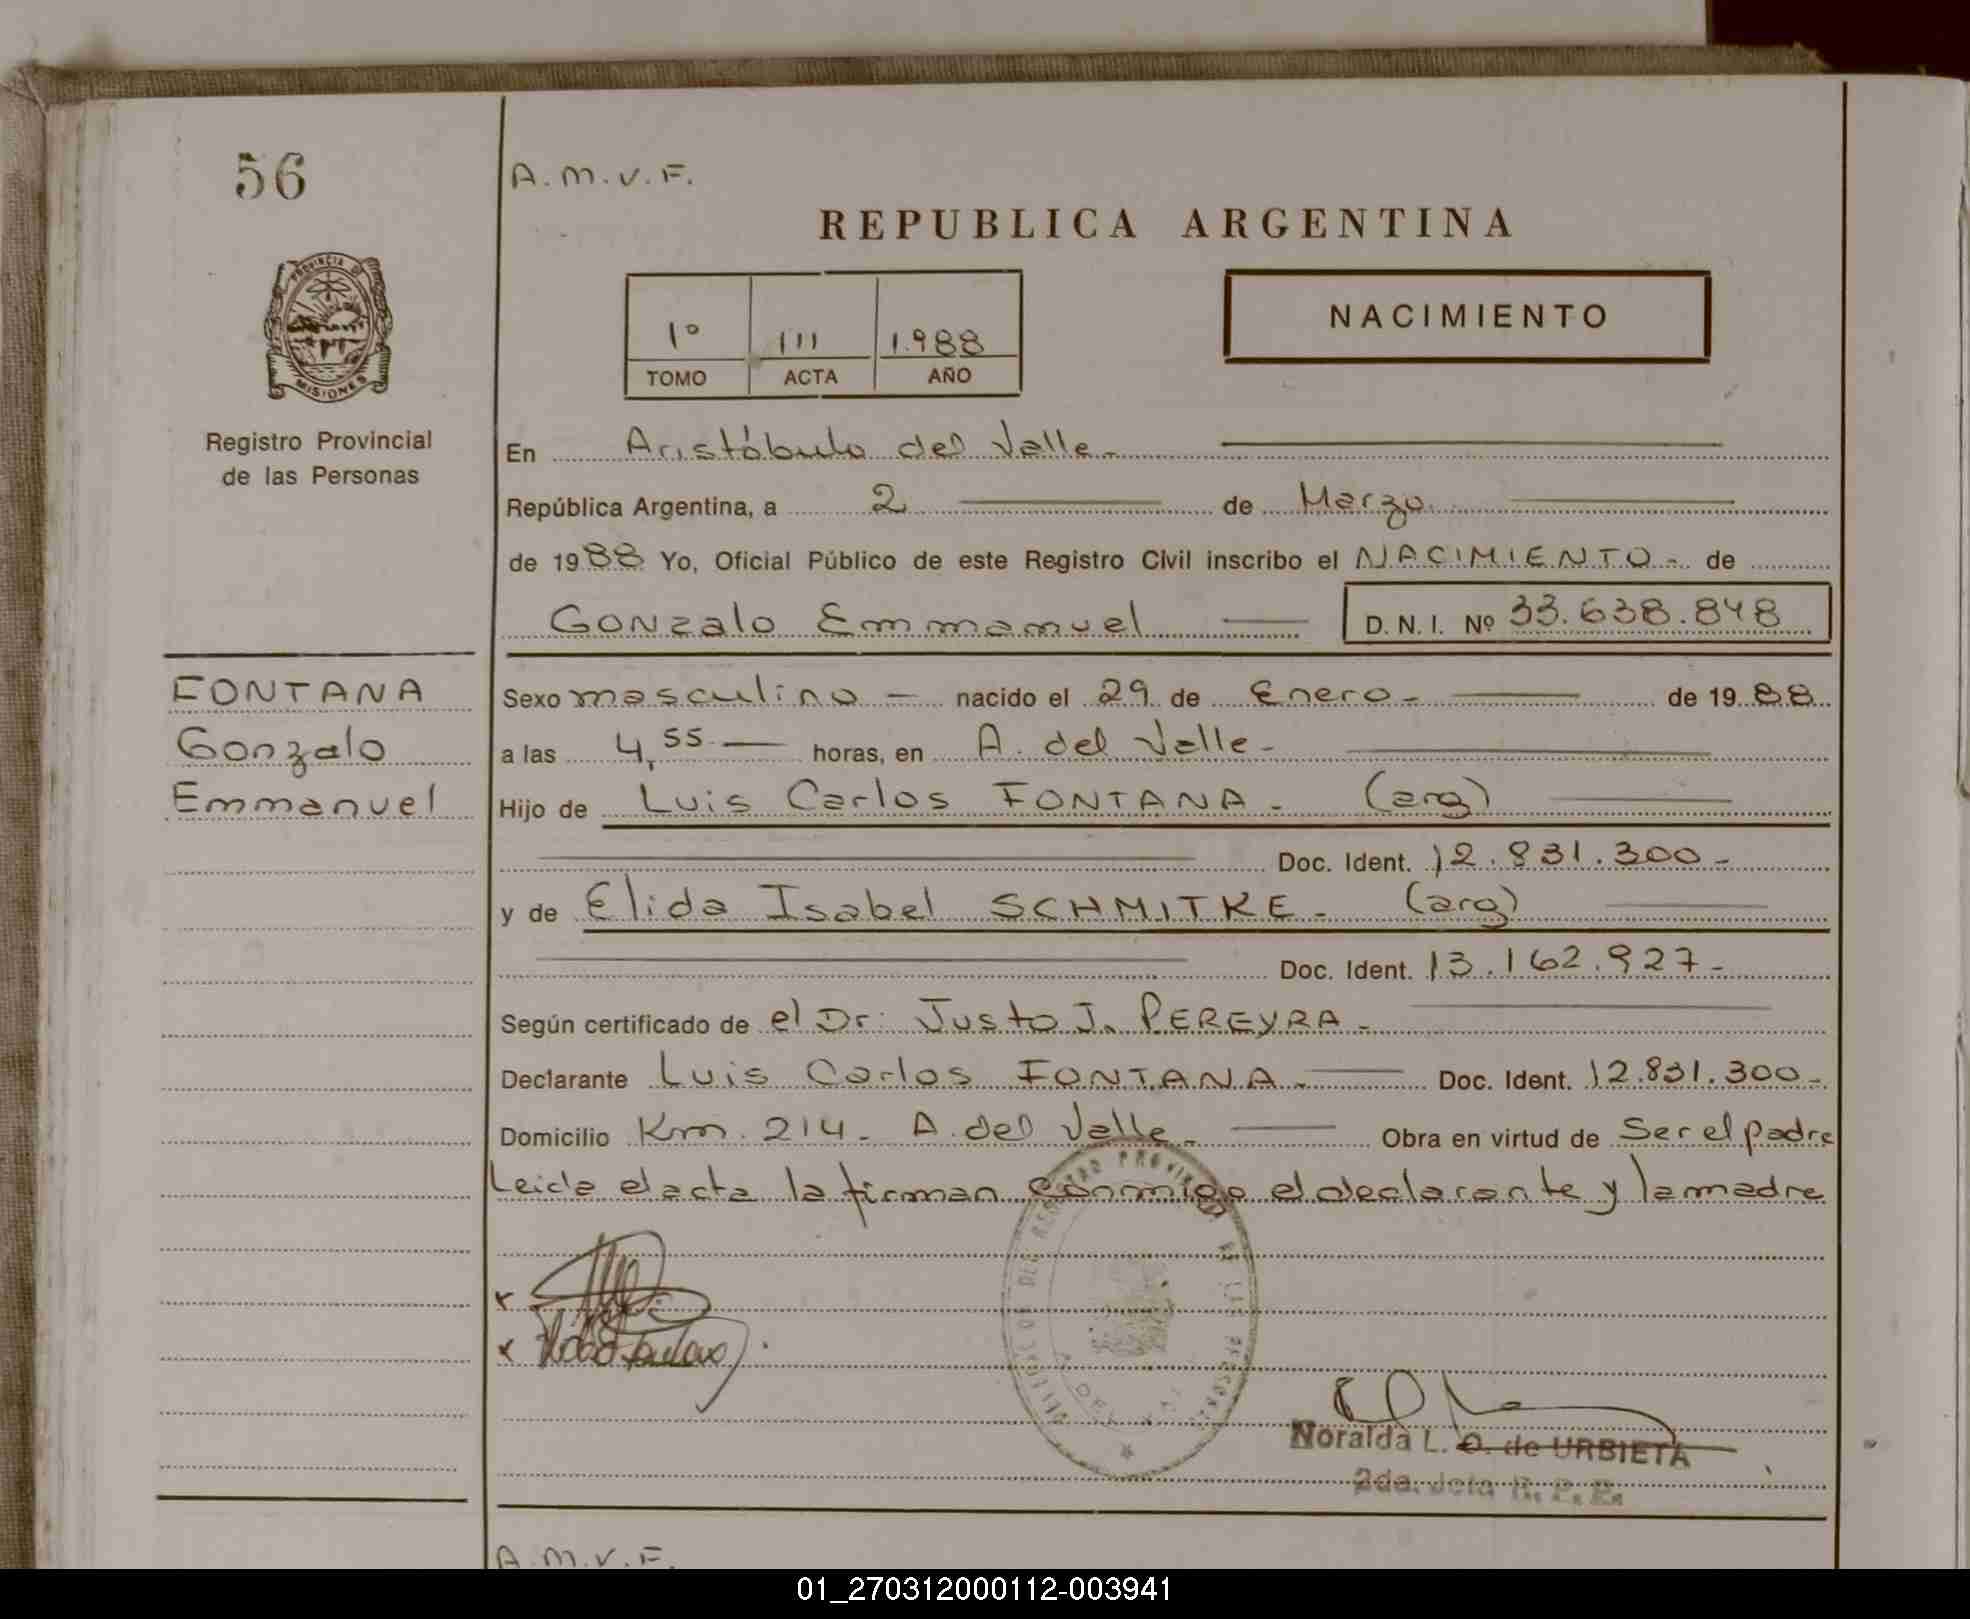 56
A.M.V.F.
REPUBLICA ARGENTINA
PROVINCIA DE
MISIONES
Registro Provincial
de las Personas
1º 111 1.988
TOMO ACTA AÑO
NACIMIENTO
En Aristóbulo del Valle.-
República Argentina, a 2 de Marzo.
de 1988 Yo, Oficial Público de este Registro Civil inscribo el NACIMIENTO.- de
Gonzalo Emmanuel D.N.I. Nº 33.638.848
FONTANA
Gonzalo
Emmanuel
Sexo masculino - nacido el 29 de Enero.- de 1988
a las 4,55 horas, en A. del Valle.-
Hijo de Luis Carlos FONTANA.- (arg)
Doc. Ident. 12.831.300.-
y de Elida Isabel SCHMITKE.- (arg)
Doc. Ident. 13.162.927.-
Según certificado de el Dr. Justo J. PEREYRA.-
Declarante Luis Carlos FONTANA.- Doc. Ident. 12.831.300.-
Domicilio Km. 214.- A. del Valle.- Obra en virtud de Ser el padre
Leida el acta la firman conmigo el declarante y la madre
Noralda L. O. de URBIETA
2da. Jefa R. P. P.
A.M.V.F.
01_270312000112-003941